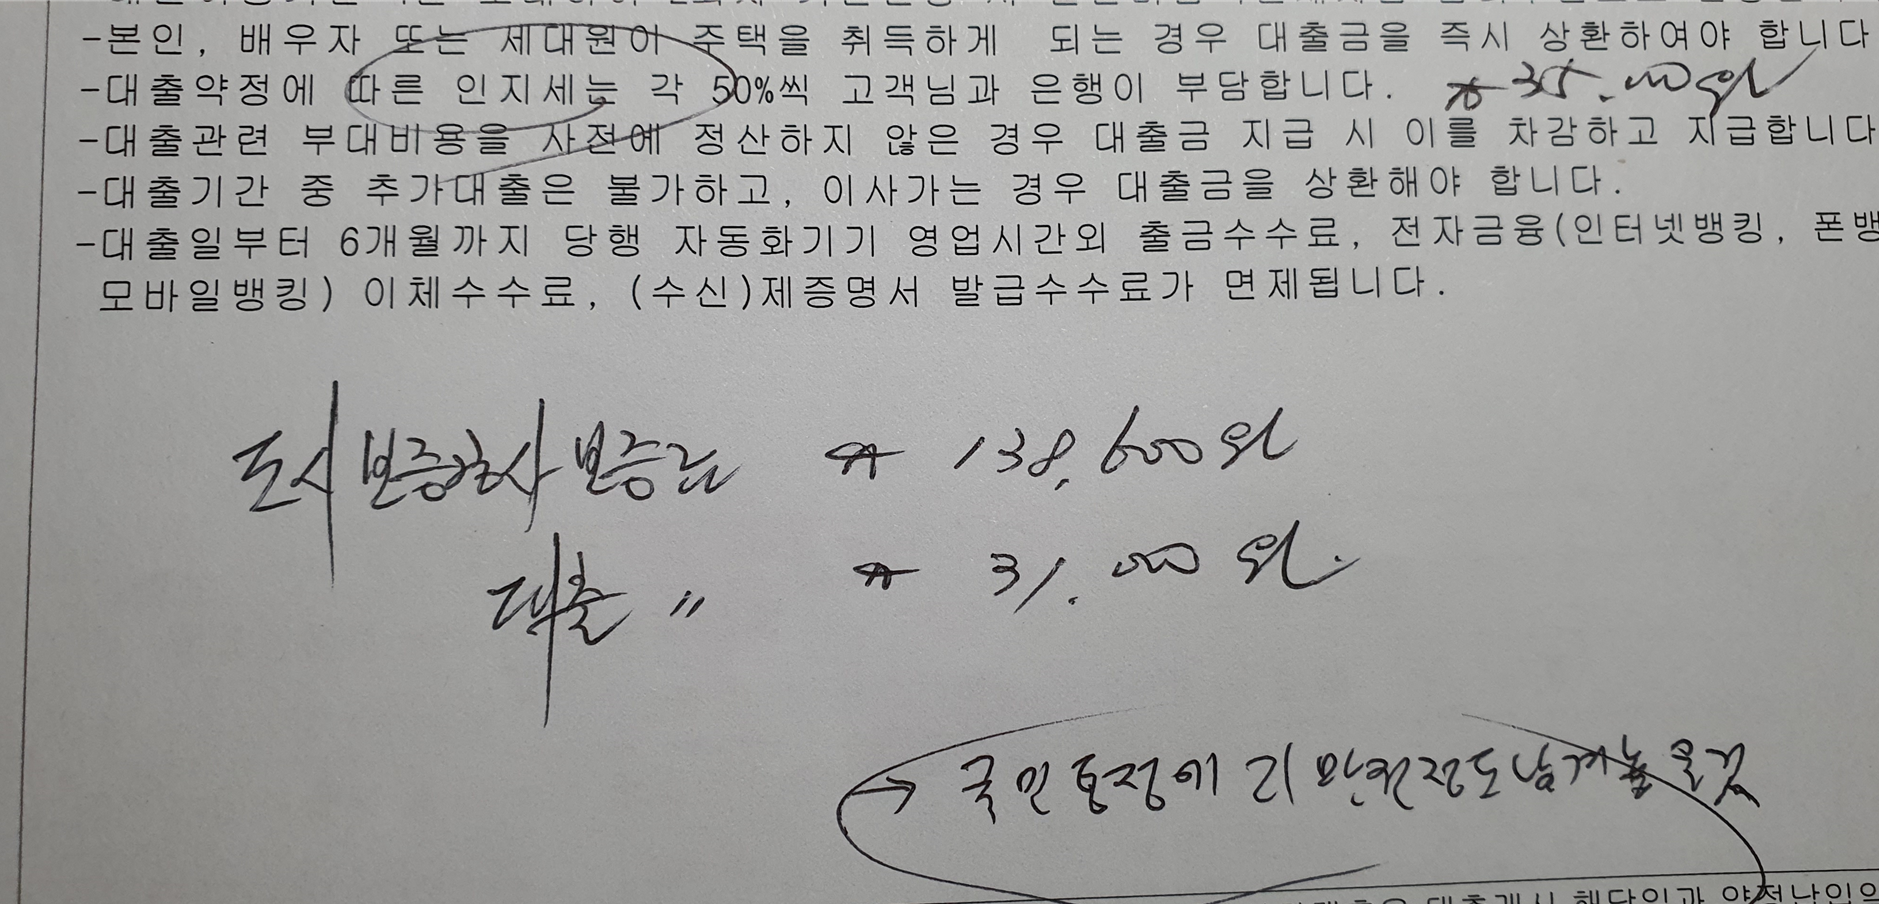 -본인, 배우자 또는 세대원이 주택을 취득하게 되는 경우 대출금을 즉시 상환하여야 합니다
-대출약정에 따른 인지세는 각 50%씩 고객님과 은행이 부담합니다. 35,000원
-대출관련 부대비용을 사전에 정산하지 않은 경우 대출금 지급 시 이를 차감하고 지급합니다
-대출기간 중 추가대출은 불가하고, 이사가는 경우 대출금을 상환해야 합니다.
-대출일부터 6개월까지 당행 자동화기기 영업시간외 출금수수료, 전자금융(인터넷뱅킹, 폰뱅
모바일뱅킹) 이체수수료, (수신)제증명서 발급수수료가 면제됩니다.
도시보증공사 보증료 138,600원
대출 〃 31,000원.
→ 국민통장에 만원정도 남겨놓을것